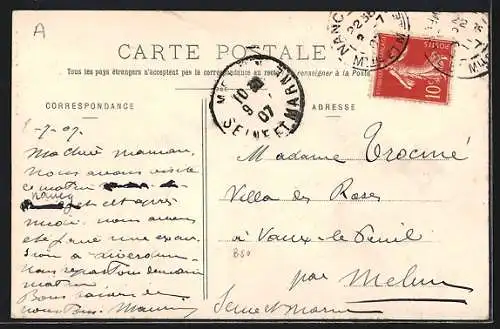 A
CARTE POSTALE
Tous les pays étrangers n'acceptent pas la correspondance au recto se renseigner à la Poste
CORRESPONDANCE
ADRESSE
NANCY
22 35
POSTES
10c
MELUN
10
9
07
SEINE ET MARNE
8-7-07.
Ma chère maman,
nous avons visité
ce matin
Nancy
et après
midi nous avons
été faire une excur
sion à
nous repartons demain
matin
Bons baisers de
nous tous. Maurice
Madame Trocmé
Villa des Roses
à Vaux-le-Pénil
B50
par Melun
Seine et Marne